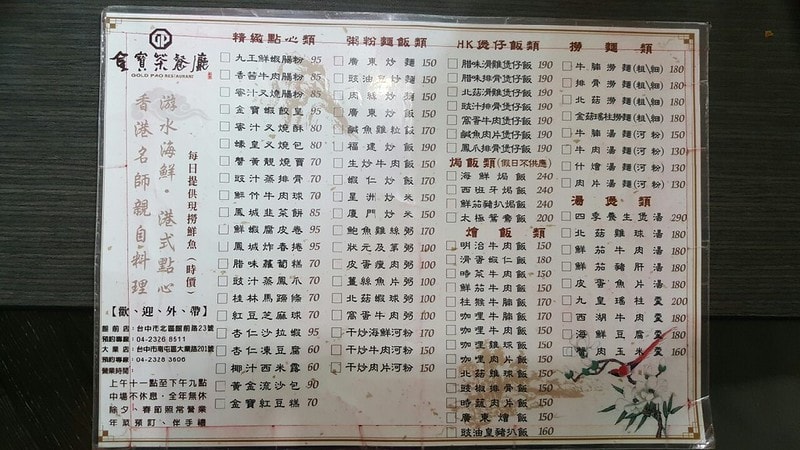 金寶茶餐廳
GOLD PAO RESTAURANT
游水海鮮・港式點心
香港名師親自料理
每日提供現撈鮮魚(時價)
【歡、迎、外、帶】
館前店:台中市北區館前路23號
預約專線:04-2326 8511
大業店:台中市南屯區大業路201號
預約專線:04-2328 3606
營業時間:
上午十一點至下午九點
中場不休息,全年無休
除夕、春節照常營業
年菜預訂、伴手禮
精緻點心類
九王鮮蝦腸粉 95
香茜牛肉腸粉 85
蜜汁叉燒腸粉 85
金寶蝦餃皇 95
蜜汁叉燒酥 80
蠔皇叉燒包 80
蟹黃靚燒賣 70
豉汁蒸排骨 70
鮮竹牛肉球 70
鳳城韭菜餅 85
鮮蝦腐皮卷 95
鳳城炸春捲 95
腊味蘿蔔糕 70
豉汁蒸鳳爪 70
桂林馬蹄條 70
紅豆芝麻球 70
杏仁沙拉蝦 95
杏仁凍豆腐 60
椰汁西米露 60
黃金流沙包 90
金寶紅豆糕 70
粥粉麵飯類
廣東炒麵 150
豉油皇炒麵 150
肉絲炒麵 150
廣東炒飯 150
鹹魚雞粒飯 170
福建炒飯 190
生炒牛肉飯 150
蝦仁炒飯 170
星洲炒米 150
廈門炒米 150
鮑魚雞絲粥 170
狀元及第粥 100
皮蛋瘦肉粥 100
鮮茄豬肝粥 100
北菇蝦球粥 100
窩蛋牛肉粥 100
干炒海鮮河粉 170
干炒牛肉河粉 150
干炒肉片河粉 150
HK煲仔飯類
腊味滑雞煲仔飯 190
腊味排骨煲仔飯 190
北菇滑雞煲仔飯 190
豉汁排骨煲仔飯 190
窩蛋牛肉煲仔飯 190
鹹魚肉片煲仔飯 190
鳳爪排骨煲仔飯 190
焗飯類(假日不供應)
海鮮焗飯 240
西班牙焗飯 240
鮮茄豬扒焗飯 240
太極鴛鴦飯 200
燴飯類
明治牛肉飯 150
滑蛋蝦仁飯 180
時菜牛肉飯 150
鮮茄牛肉飯 150
柱候牛腩飯 170
咖哩牛腩飯 170
咖哩牛肉飯 150
咖哩雞球飯 150
咖哩肉片飯 150
北菇雞球飯 150
豉椒排骨飯 150
時蔬肉片飯 150
廣東燴飯 150
豉油皇豬扒飯 160
撈麵類
牛腩撈麵(粗\細) 180
排骨撈麵(粗\細) 180
北菇撈麵(粗\細) 180
金菇瑤柱撈麵(粗\細) 180
牛腩湯麵(河粉) 130
牛肉湯麵(河粉) 130
什燴湯麵(河粉) 130
肉片湯麵(河粉) 130
湯羹類
四季養生煲湯 290
北菇雞球湯 180
鮮茄牛肉湯 180
鮮茄豬肝湯 180
皮蛋魚片湯 180
九皇瑤柱羹 200
西湖牛肉羹 180
海鮮豆腐羹 180
蟹肉玉米羹 160